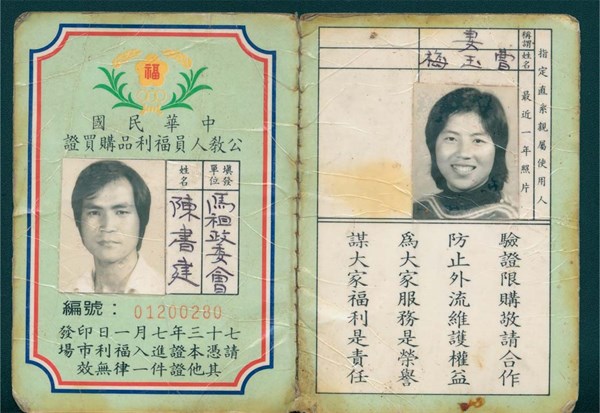 福
中華民國
公教人員福利品購買證
填發單位
馬祖政委會
姓名
陳書建
編號：01200280
七十三年七月一日印發
請憑本證進入福利市場
其他證件一律無效
指定直系親屬使用人
稱謂
妻
姓名
曹玉梅
最近一年照片
驗證限購敬請合作
防止外流維護權益
為大家服務是榮譽
謀大家福利是責任